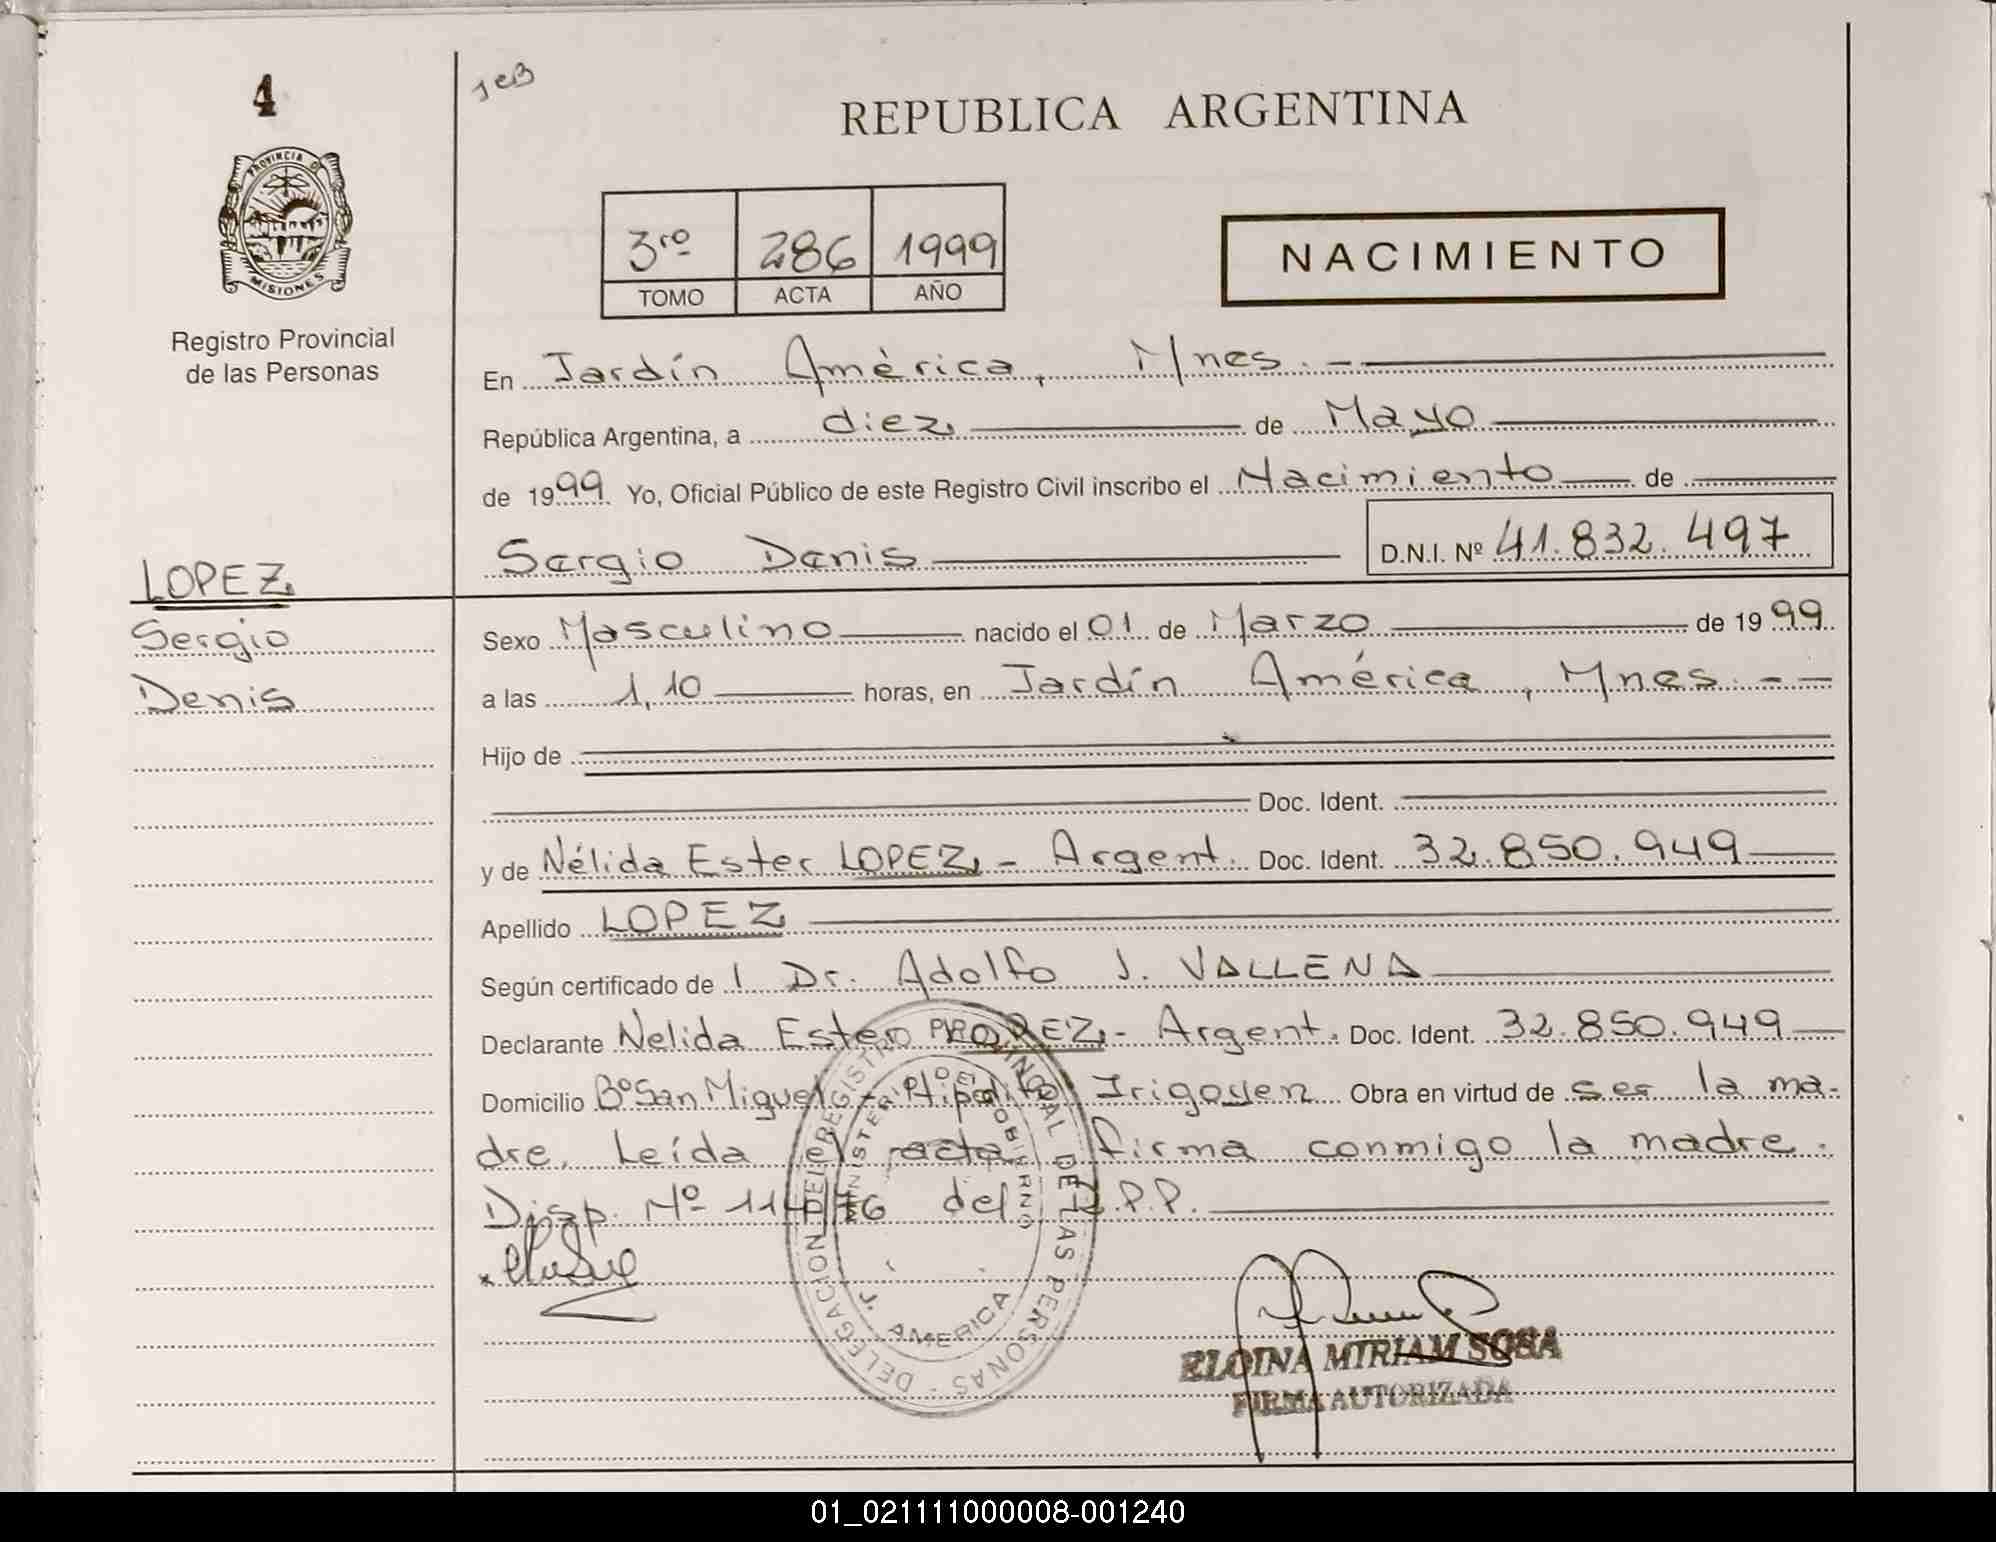 4
PROVINCIA D
MISIONES
Registro Provincial
de las Personas
LOPEZ
Sergio
Denis
REPUBLICA ARGENTINA
3ro 286 1999
TOMO ACTA AÑO
NACIMIENTO
En Jardín América, Mnes. -
República Argentina, a diez de Mayo
de 1999. Yo, Oficial Público de este Registro Civil inscribo el Nacimiento de
Sergio Denis D.N.I. Nº 41.832.497
Sexo Masculino nacido el 01 de Marzo de 1999
a las 1,10 horas, en Jardín América, Mnes. - -
Hijo de
Doc. Ident.
y de Nélida Ester LOPEZ - Argent. Doc. Ident. 32.850.949
Apellido LOPEZ
Según certificado de l Dr. Adolfo J. VALLENA
Declarante Nelida Ester LOPEZ - Argent. Doc. Ident. 32.850.949
Domicilio Bº San Miguel - Hipólito Irigoyen Obra en virtud de ser la ma-
dre. Leída el acta firma conmigo la madre.
Disp. Nº 114/76 del R.P.P.
DELEGACION DEL REGISTRO PROVINCIAL DE LAS PERSONAS -
MINISTERIO DE GOBIERNO
J. AMERICA
ELOINA MIRIAM SOSA
FIRMA AUTORIZADA
01_021111000008-001240